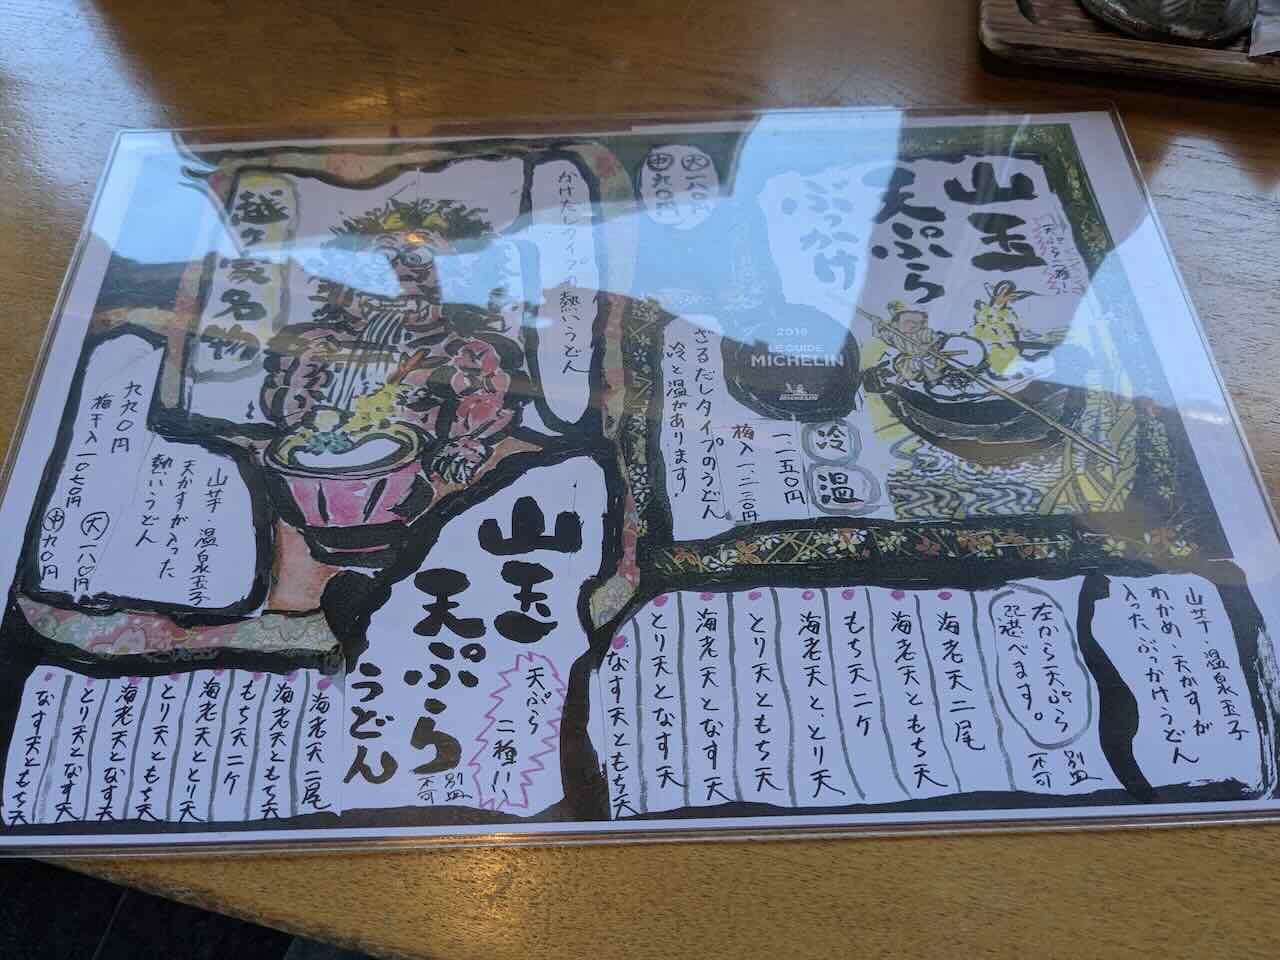 山玉
天ぷら
ぶっかけ
天ぷら二種
大 一八〇円
中 九〇円
2019
LE GUIDE
MICHELIN
MICHELIN
冷
温
一一五〇円
梅入一二三〇円
ざるだしタイプのうどん
冷と温があります!
山芋・温泉玉子
わかめ・天かすが
入ったぶっかけうどん
左から天ぷら
選べます。
別皿
不可
海老天二尾
海老天ともち天
もち天二ケ
海老天と、とり天
とり天ともち天
海老天となす天
とり天となす天
なす天ともち天
かけだしタイプの熱いうどん
越ヶ家名物
九九〇円
梅干入一〇七〇円
大 一八〇円
中 九〇円
山芋・温泉玉子
天かすが入った
熱いうどん
山玉
天ぷら
うどん
天ぷら
二種!!
別皿
不可
海老天二尾
海老天ともち天
もち天二ケ
海老天ととり天
とり天ともち天
海老天となす天
とり天となす天
なす天ともち天